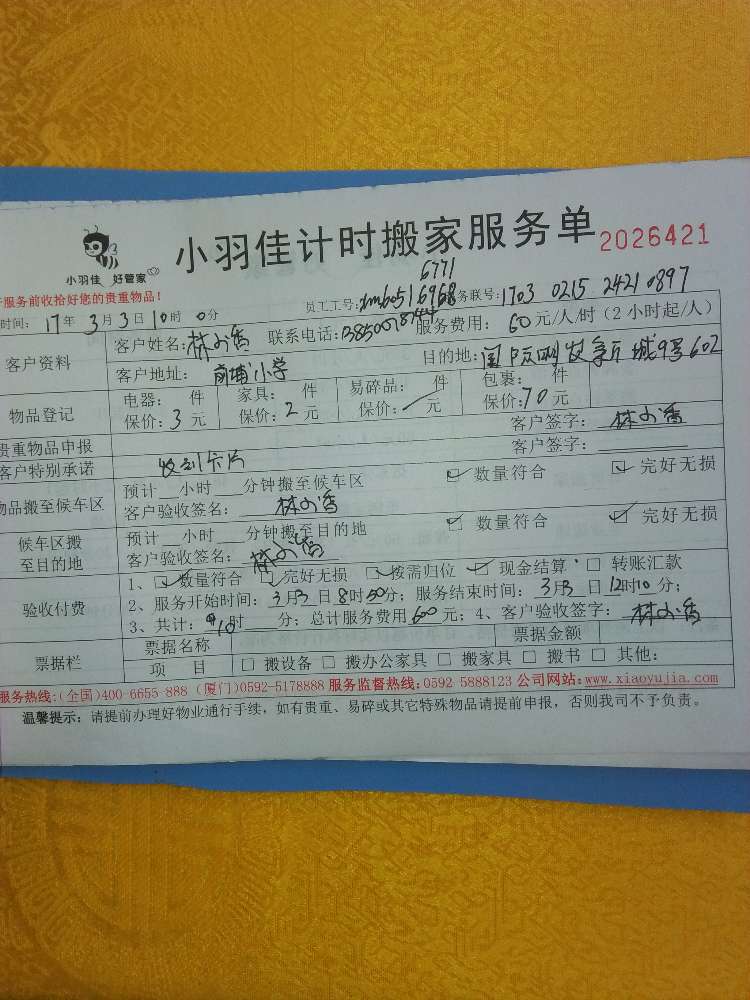 小羽佳计时搬家服务单 2026421
小羽佳 好管家
服务前收拾好您的贵重物品！
6771
员工工号: 务联号: 1703 0215 2421 0897
时间: 17年 3月 3日 10时 0分
客户资料
客户姓名: 林小香 联系电话: 服务费用: 60元/人/时（2小时起/人）
客户地址: 前埔小学 目的地: 城9号602
物品登记
电器: 件 家具: 件 易碎品: 件 包裹: 件
保价: 3元 保价: 2元 保价: 元 保价: 70元
贵重物品申报 客户签字: 林小香
客户特别承诺 收到卡片 客户签字:
物品搬至候车区
预计 小时 分钟搬至候车区 ☑ 数量符合 ☑ 完好无损
客户验收签名: 林小香
候车区搬至目的地
预计 小时 分钟搬至目的地 ☑ 数量符合 ☑ 完好无损
客户验收签名: 林小香
验收付费
1、☑数量符合 ☑完好无损 ☑按需归位 ☑现金结算 □ 转账汇款
2、服务开始时间: 3月3日8时50分; 服务结束时间: 3月3日12时10分;
3、共计: 时 分; 总计服务费用600元; 4、客户验收签字: 林小香
票据栏
票据名称 票据金额
项 目 □ 搬设备 □ 搬办公家具 □ 搬家具 □ 搬书 □ 其他:
服务热线:(全国)400-6655-888 (厦门)0592-5178888 服务监督热线:0592-5888123 公司网站:www.xiaoyujia.com
温馨提示: 请提前办理好物业通行手续，如有贵重、易碎或其它特殊物品请提前申报，否则我司不予负责。